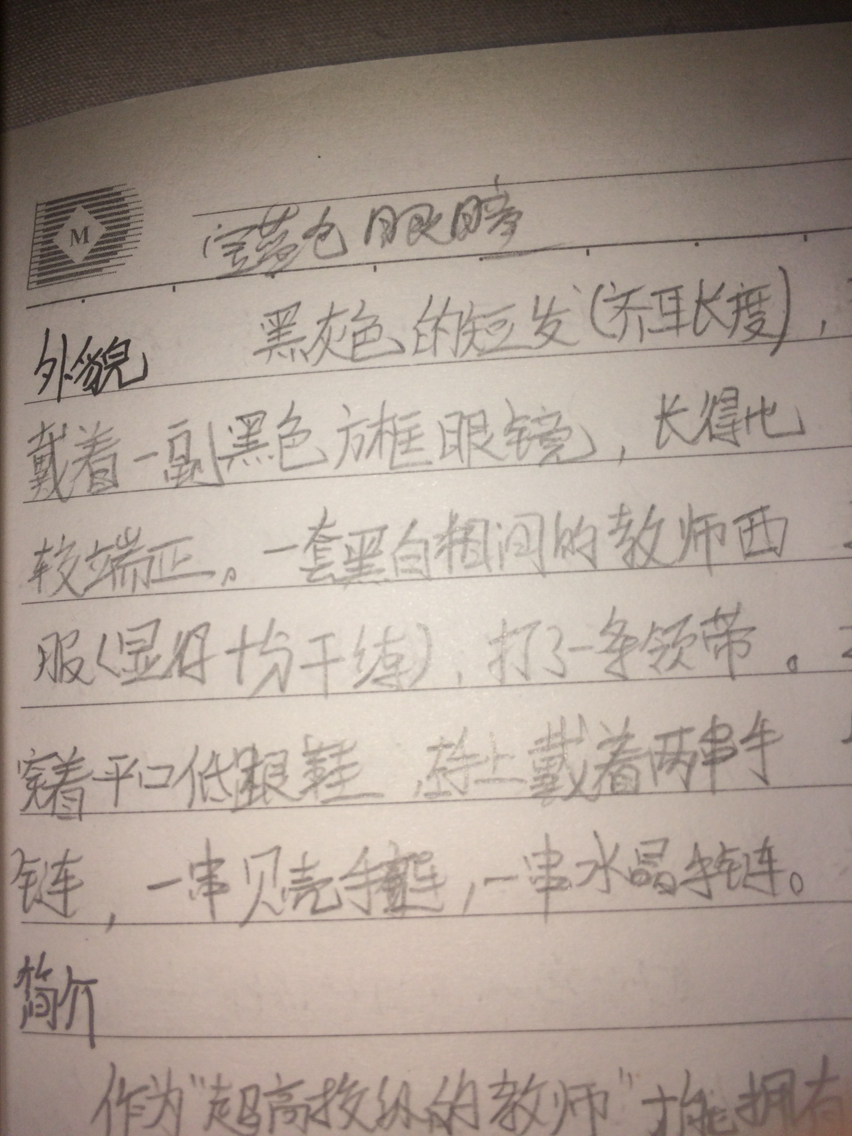 M
宝蓝色眼瞎
外貌 黑灰色的短发(齐耳长度),
戴着一副黑色方框眼镜,长得也
较端正。一套黑白相间的教师西
服(显得十分干练),打了一条领带。
穿着平口低跟鞋,左手上戴着两串手
链,一串贝壳手链,一串水晶手链。
简介
作为“超高校级的教师”才能拥有